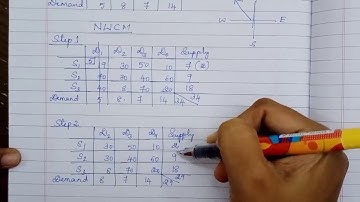 Demand 5 8 7 14
N
W E
S
NWCM
Step 1
D1 D2 D3 D4 Supply
S1 19 30 50 10 7 (2)
S2 70 30 40 60 9
S3 40 8 70 20 18
Demand 5 8 7 14 34 34
Step 2
D2 D3 D4 Supply
S1 30 50 10 2
S2 30 40 60 9
S3 8 70 20 18
Demand 8 7 14 29 29